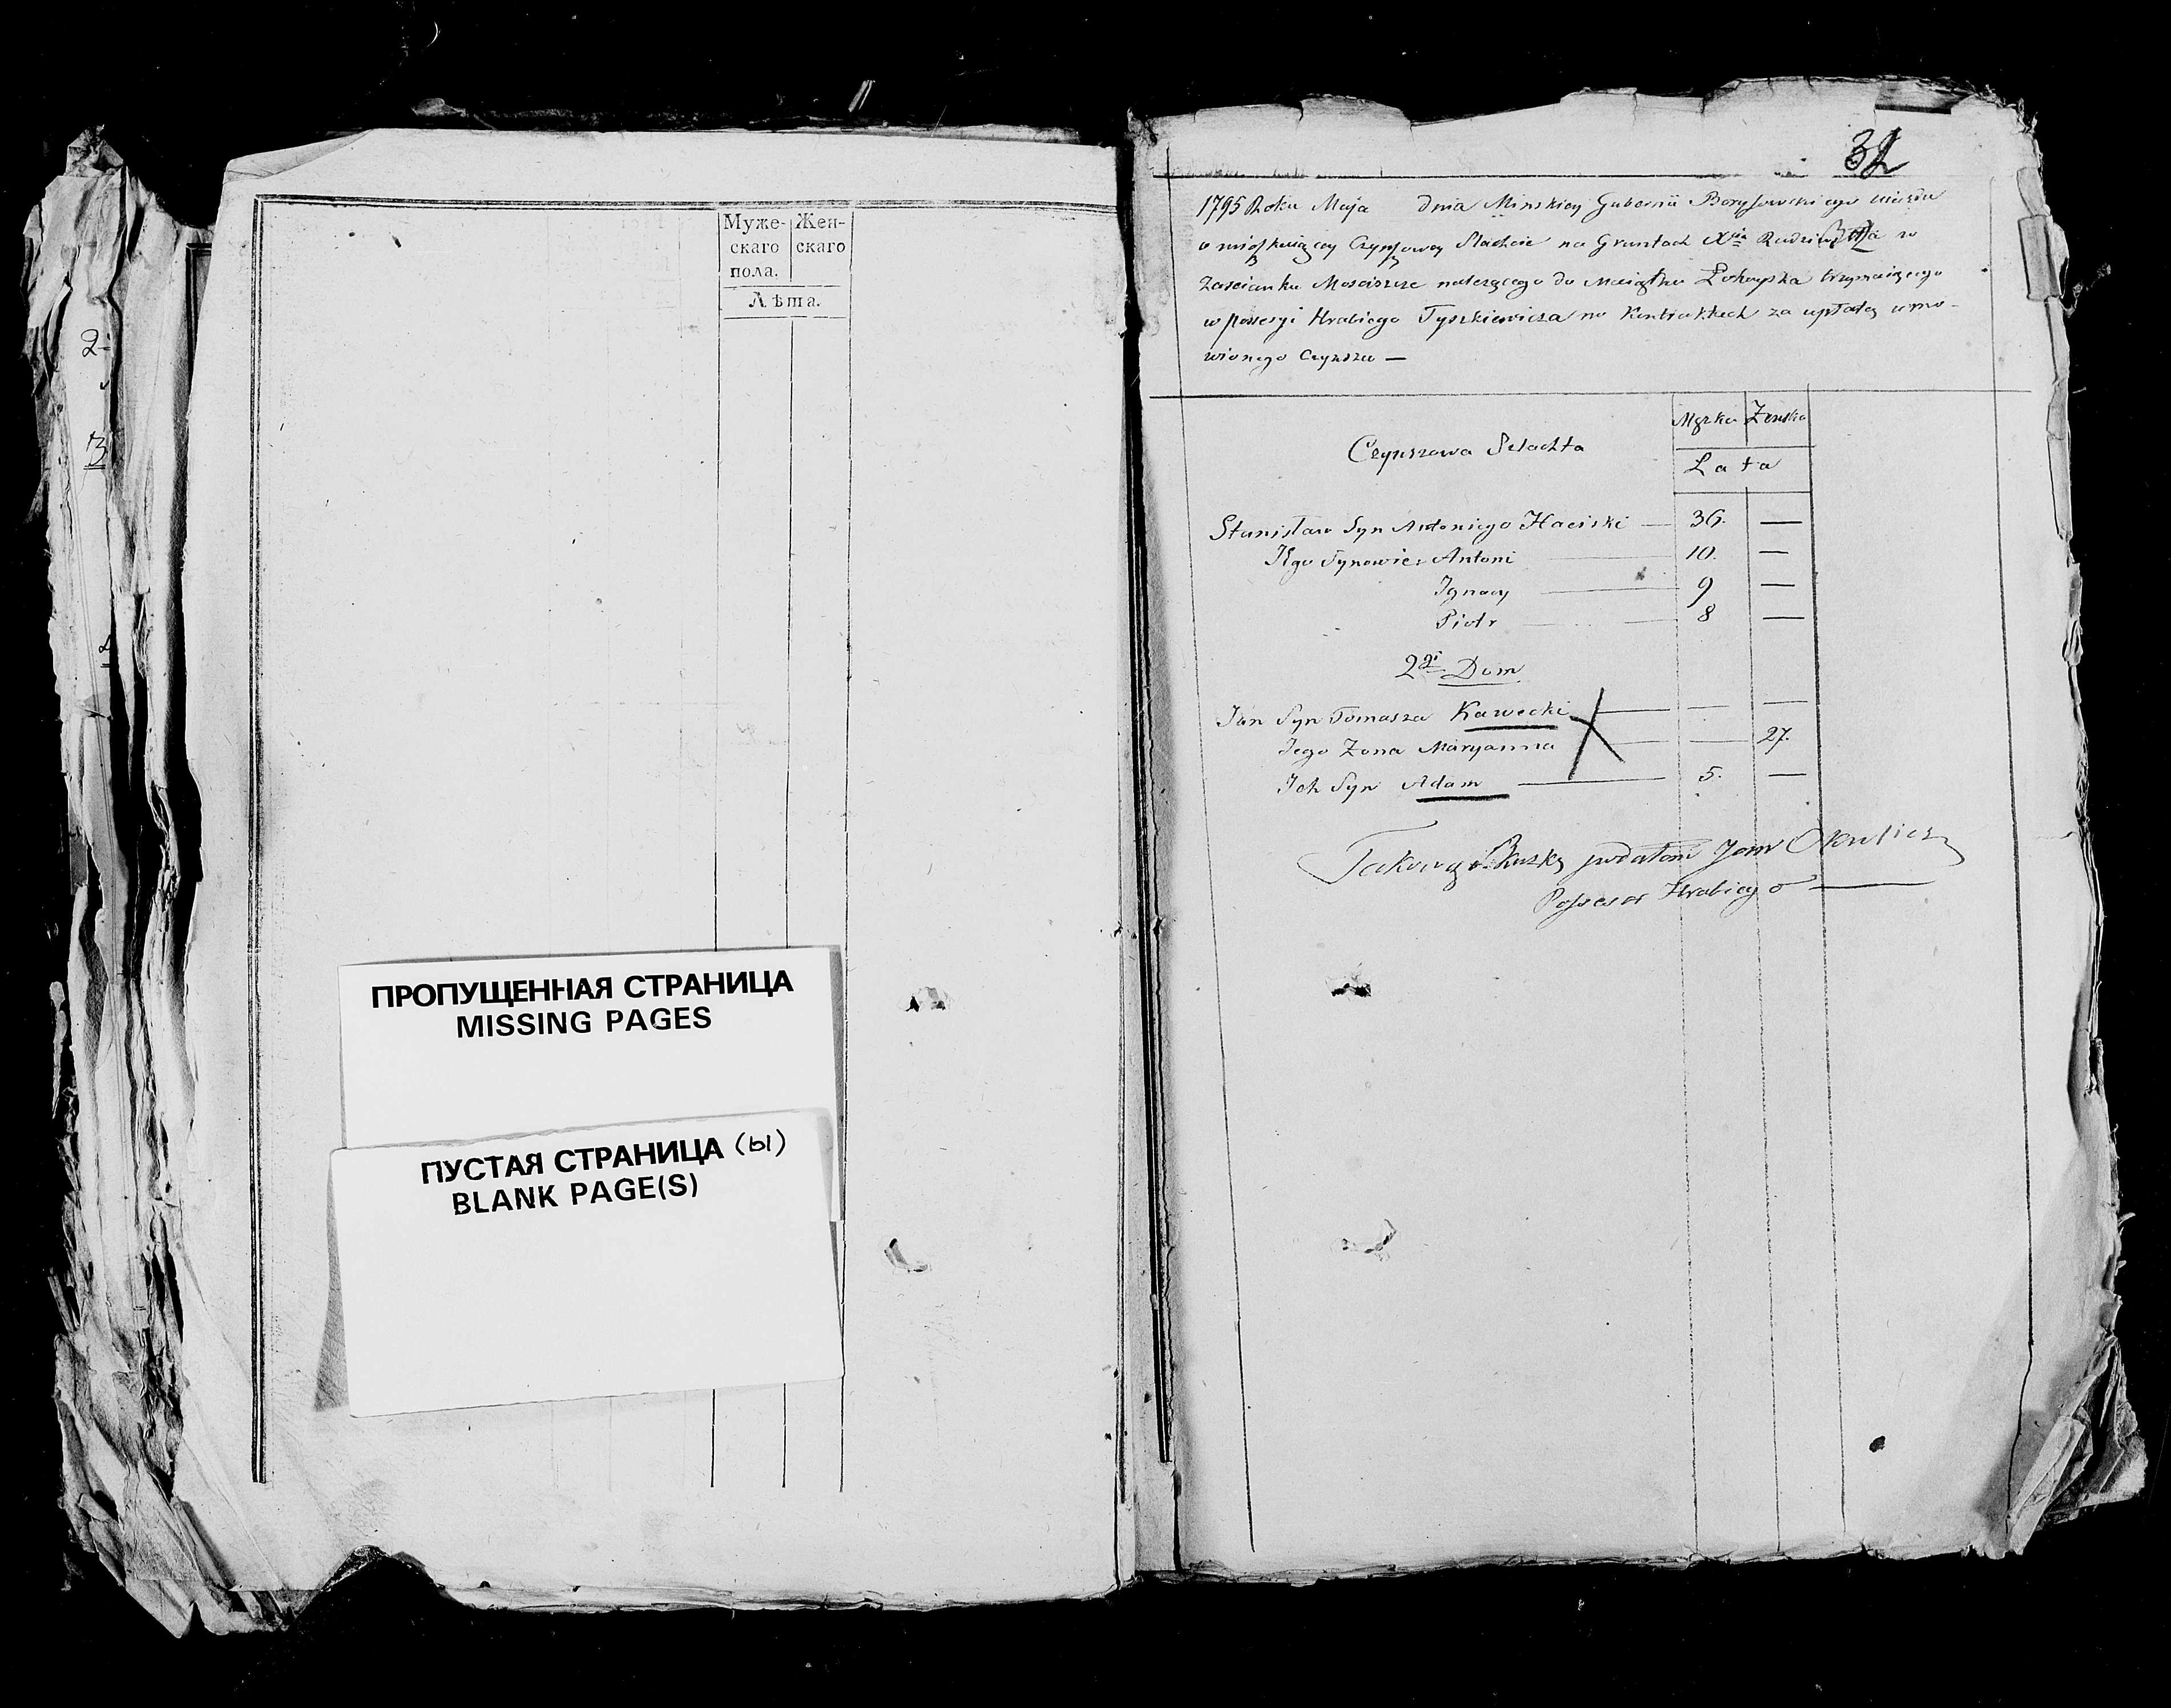 2
3
Муже-
скаго
пола.
Жен-
скаго
Лѣта.
ПРОПУЩЕННАЯ СТРАНИЦА
MISSING PAGES
ПУСТАЯ СТРАНИЦА (ы)
BLANK PAGE(S)
32
1795 Roku Maja dnia Minskiey Gubernii Borysowskiego
o Czynszowey Szlachcie na Gruntach Xcia w
Zascianku Mosciszcze należącego do Maiątku trzymaiącego
w possesyi Hrabiego Tyszkiewicza na Kontraktach za upłatą umo-
wionego Czynszu —
Czynszowa Szlachta
Męzka Zenska
Lata
Stanisław Syn Antoniego Haciski — 36. —
Jego Synowie: Antoni 10. —
Ignacy 9 —
Piotr 8 —
2gi Dom
Jan Syn Tomasza Kawecki — — —
Jego Zona Maryanna — — 27.
Ich Syn Adam — 5. —
Takową Skazkę podałem Jan Okulicz
Possesor Hrabiego —